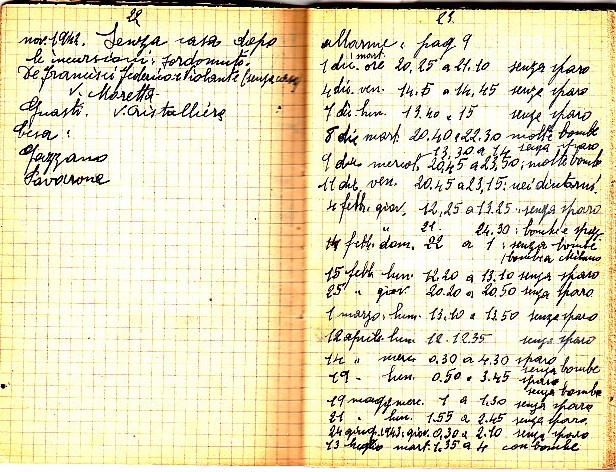 22
nov. 1942. Senza casa dopo
le incursioni: sordomuti.
De Francisci Federico e Violante (senza casa)
V. Maretta
Guasti. V. Cristalliera
Cesa:
Gazzano
Pavarone
23.
allarme: pag 9
1 dic. mart. ore 20,25 a 21.10 senza sparo
4 dic. ven. 14.5 a 14,45 senza sparo
7 dic lun. 13.40 a 15 senza sparo
8 dic mart. 20.40 a 22.30 molte bombe
13,30 a 14 senza sparo
9 dic. mercol. 20,45 a 23,50: molte bomb
11 dic. ven. 20.45 a 23,15: nei dintorni
4 febb. giov. 12,25 a 13.25: senza sparo
" 21. 24.30: bombe e sparo
14 febb. dom. 22 a 1: senza bombe
bombe a Milano
15 febb lun. 12.20 a 13.10 senza sparo
25 " giov. 20.20 a 20.50 senza sparo
1 marzo: lun. 13.10 a 13.50 senza sparo
12 aprile lun. 12.12.35 senza sparo
14 " merc. 0.30 a 4.30 sparo
senza bombe
19 - lun. 0.50 a 3.45 sparo
senza bombe
19 magg. merc. 1 a 1.30 senza sparo
21 - lun. 1.55 a 2.45 senza sparo
24 giug. 1943: giov. 0,30 a 2.10 senza sparo
13 luglio mart. 1.35 a 4 con bombe